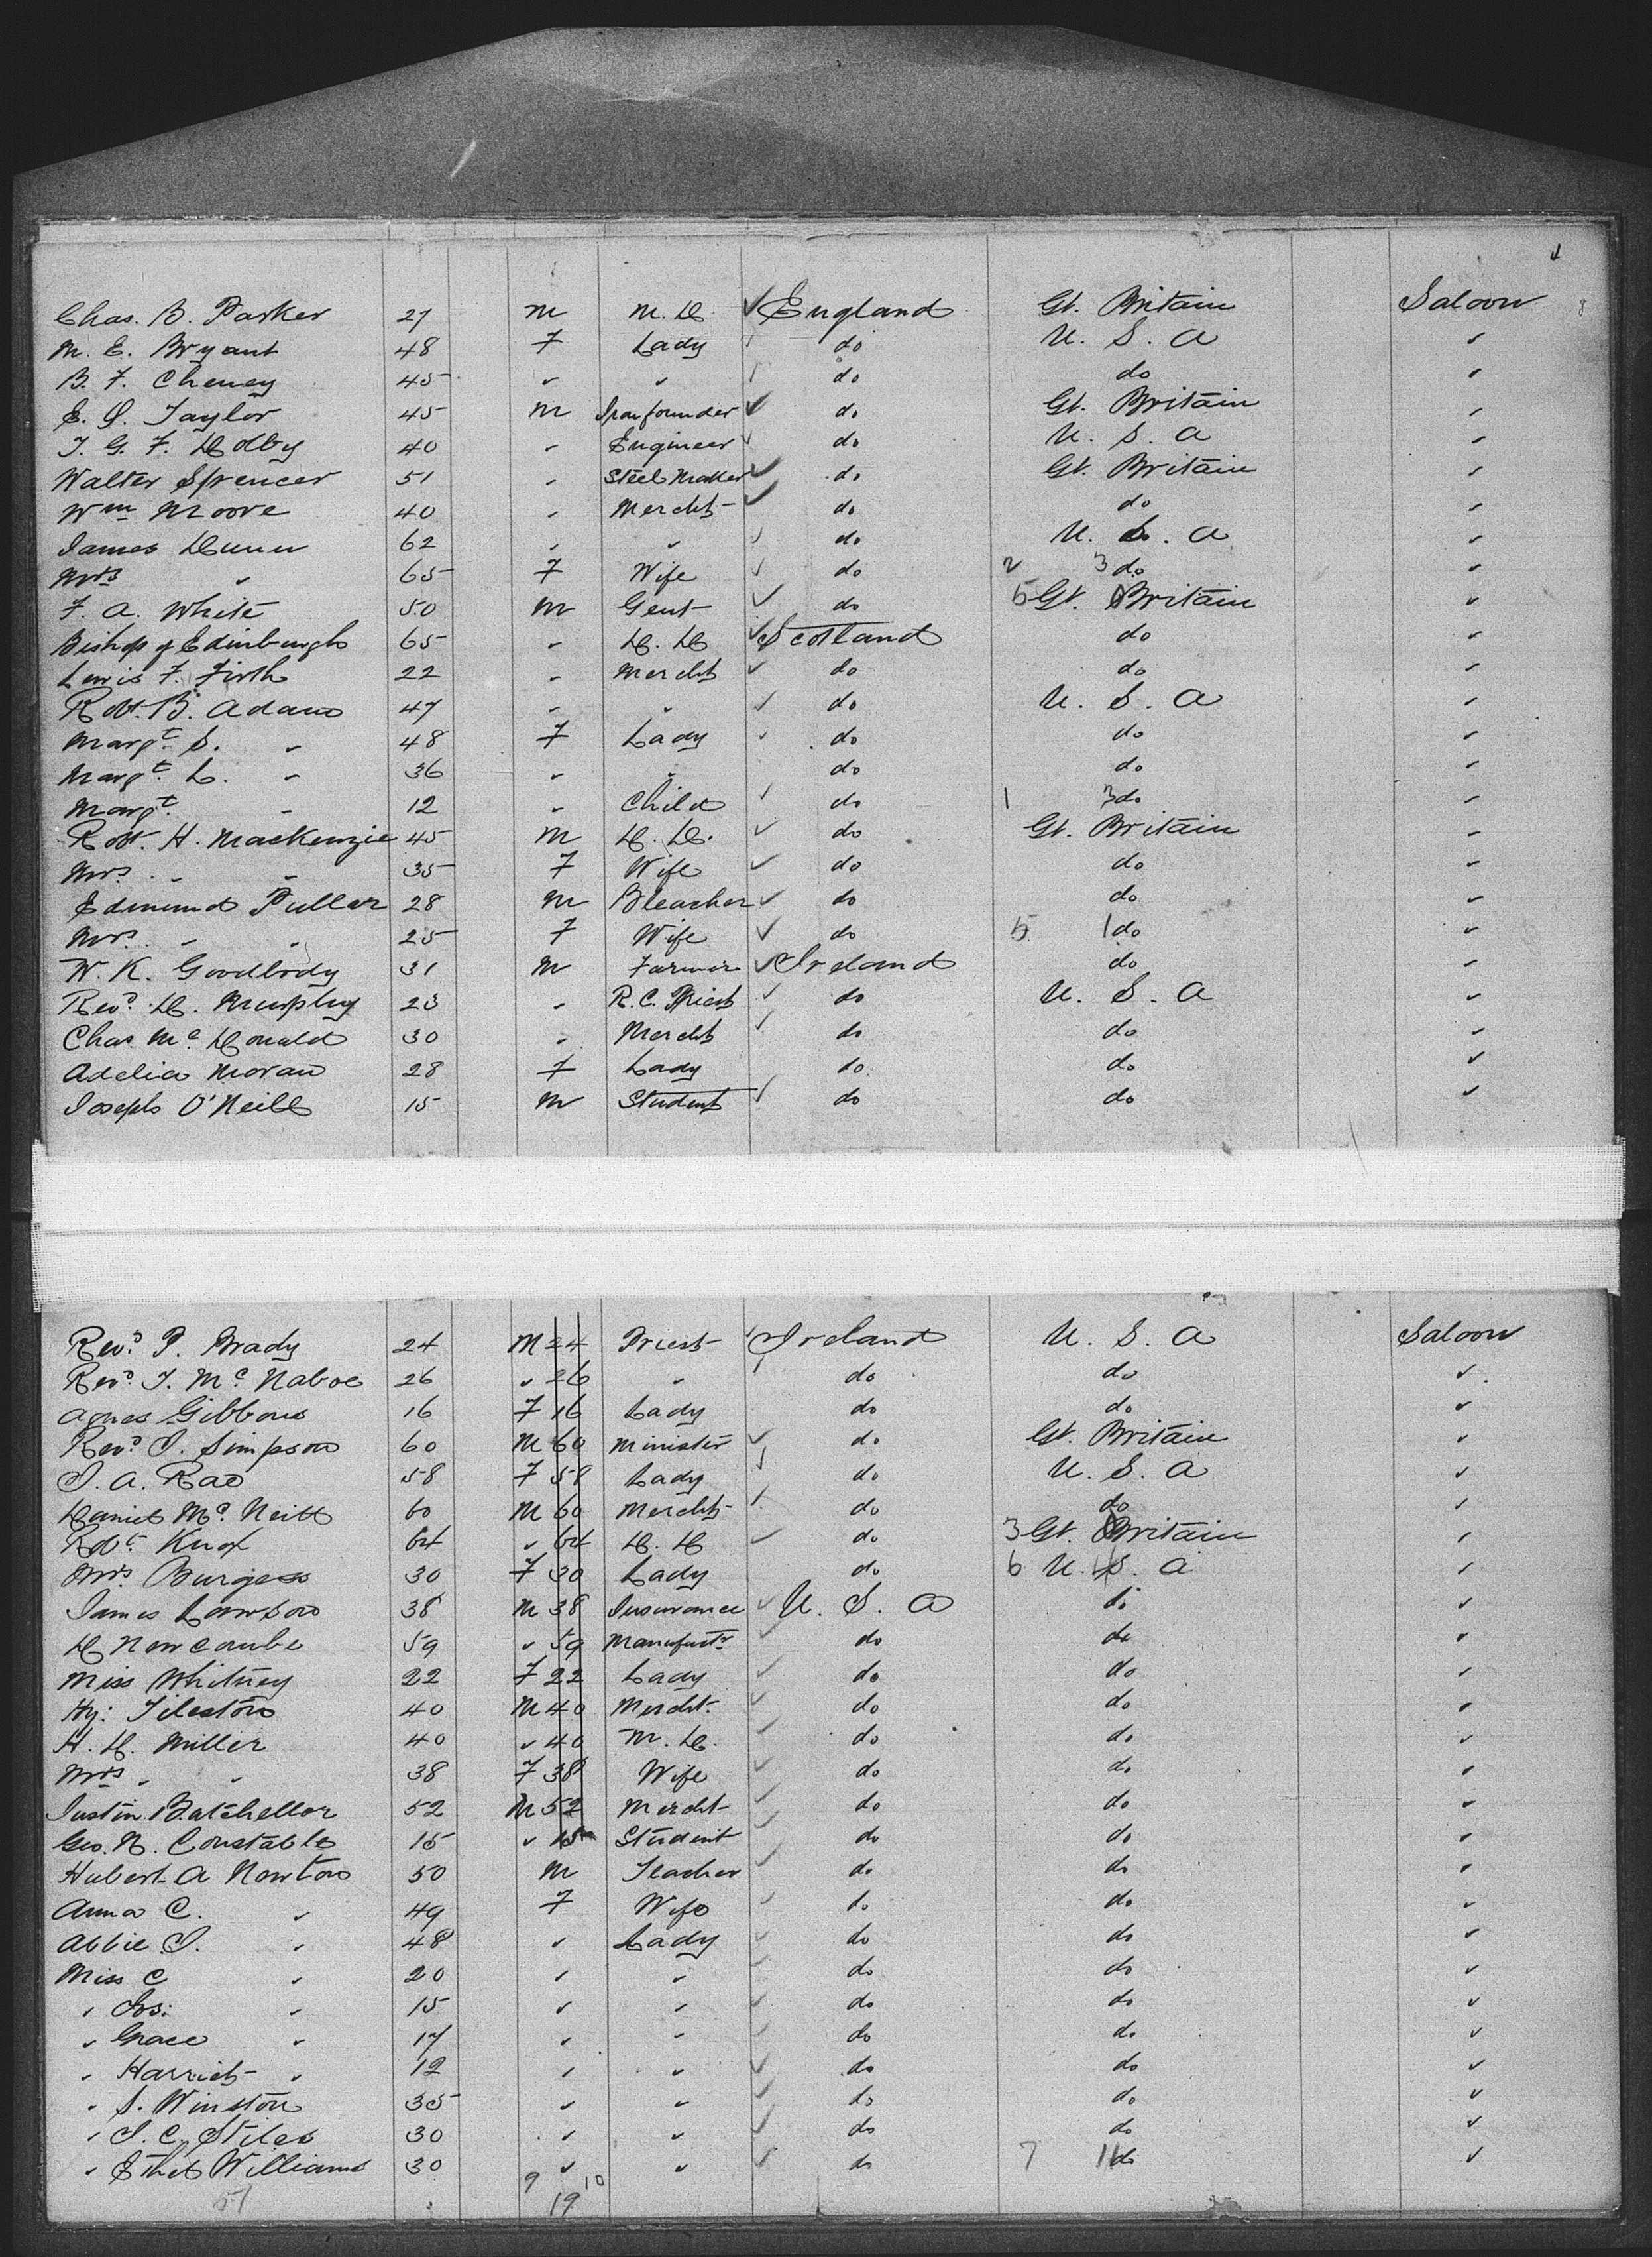 Chas. B. Parker 27 M M.D. ✓ England Gt. Britain Saloon
M. E. Bryant 48 F Lady do U. S. A ✓
B. F. Cheney 45 ✓ ✓ do do ✓
E. S. Taylor 45 M Iron founder ✓ do Gt. Britain ✓
T. G. F. Dolby 40 ✓ Engineer ✓ do U. S. A ✓
Walter Spencer 51 ✓ Steel Maker ✓ do Gt. Britain ✓
Wm Moore 40 ✓ Mercht ✓ do do ✓
James Dunn 62 ✓ ✓ ✓ do U. S. A ✓
Mrs ✓ 65 F Wife ✓ do 2 3 do ✓
F. A. White 50 M Gent ✓ do 5 Gt. Britain ✓
Bishop of Edinburgh 65 ✓ D. D ✓ Scotland do ✓
Lewis F. Firth 22 ✓ Mercht ✓ do do ✓
Robt. B. Adams 47 ✓ ✓ ✓ do U. S. A ✓
Margt. S. ✓ 48 F Lady ✓ do do ✓
Margt. L. ✓ 36 ✓ ✓ do do ✓
Margt. ✓ 12 ✓ Child ✓ do 1 3 do ✓
Robt. H. MacKenzie 45 M D. D. ✓ do Gt. Britain ✓
Mrs. ✓ ✓ 35 F Wife ✓ do do ✓
Edmund Puller 28 M Bleacher ✓ do do ✓
Mrs. ✓ ✓ 25 F Wife ✓ do 5 1 do ✓
W. K. Goodbody 31 M Farmer ✓ Ireland do ✓
Revd. D. Murphy 23 ✓ R. C. Priest ✓ do U. S. A ✓
Chas. Mc Donald 30 ✓ Mercht ✓ do do ✓
Adelia Moran 28 F Lady do do ✓
Joseph O'Neill 15 M Student ✓ do do ✓
Revd. P. Brady 24 M 24 Priest ✓ Ireland U. S. A Saloon
Revd. J. Mc Naboe 26 ✓ 26 ✓ do do ✓
Agnes Gibbons 16 F 16 Lady do do ✓
Revd. J. Simpson 60 M 60 Minister ✓ do Gt. Britain ✓
J. A. Rae 58 F 58 Lady ✓ do U. S. A ✓
Daniel Mc Neill 60 M 60 Mercht ✓ do do ✓
Robt. Knox 64 ✓ 64 D. D ✓ do 3 Gt. Britain ✓
Mrs. Burgess 30 F 30 Lady do 6 U. S. A ✓
James Lawson 38 M 38 Insurance ✓ U. S. A do ✓
D Newcombe 59 ✓ 59 Manufactr ✓ do do ✓
Miss Whitney 22 F 22 Lady ✓ do do ✓
Hy: Tileston 40 M 40 Mercht. ✓ do do ✓
H. D. Miller 40 ✓ 40 M. D. ✓ do do ✓
Mrs ✓ ✓ 38 F 38 Wife ✓ do do ✓
Justin Batchellor 52 M 52 Mercht ✓ do do ✓
Geo. N. Constable 15 ✓ 15 Student do do ✓
Hubert A Newton 50 M Teacher ✓ do do ✓
Anna C. ✓ 49 F Wife ✓ do do ✓
Abbie J. ✓ 48 ✓ Lady ✓ do do ✓
Miss C ✓ 20 ✓ ✓ ✓ do do ✓
✓ Jos: ✓ 15 ✓ ✓ ✓ do do ✓
✓ Grace ✓ 17 ✓ ✓ ✓ do do ✓
✓ Harriet ✓ 12 ✓ ✓ ✓ do do ✓
✓ S. Winston 35 ✓ ✓ ✓ do do ✓
✓ J. C. Stiles 30 ✓ ✓ ✓ do do ✓
✓ Ethel Williams 30 ✓ ✓ ✓ do 7 16 do ✓
51 9 10
19